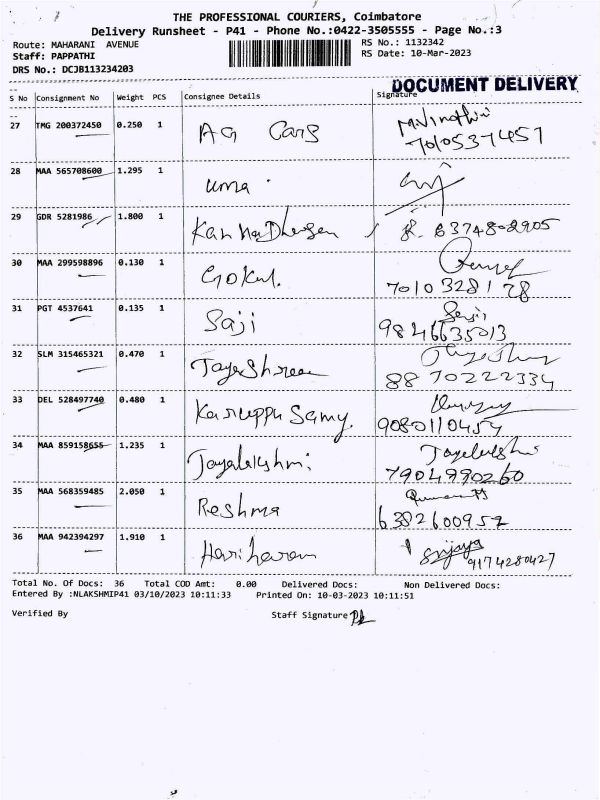 THE PROFESSIONAL COURIERS, Coimbatore
Delivery Runsheet - P41 - Phone No.:0422-3505555 - Page No.:3
Route: MAHARANI AVENUE RS No.: 1132342
Staff: PAPPATHI RS Date: 10-Mar-2023
DRS No.: DCJB113234203
DOCUMENT DELIVERY
S No Consignment No Weight PCS Consignee Details Signature
27 TMG 200372450 0.250 1 AG Cars M.Vinothini
7010537457
28 MAA 565708600 1.295 1 uma
29 GDR 5281986 1.800 1 Kannadhasan 63748-2905
30 MAA 299598896 0.130 1 Gokul.
7010328128
31 PGT 4537641 0.135 1 Saji Saji
9846635013
32 SLM 315465321 0.470 1 JayaShree
8870222334
33 DEL 528497740 0.480 1 Karuppu Samy.
9080110454
34 MAA 859158655 1.235 1 Jayalakshmi Jayalakshmi
7904990260
35 MAA 568359485 2.050 1 Reshma
6382600957
36 MAA 942394297 1.910 1 Hariharan Srijaya
9174280427
Total No. Of Docs: 36 Total COD Amt: 0.00 Delivered Docs: Non Delivered Docs:
Entered By :NLAKSHMIP41 03/10/2023 10:11:33 Printed On: 10-03-2023 10:11:51
Verified By Staff Signature